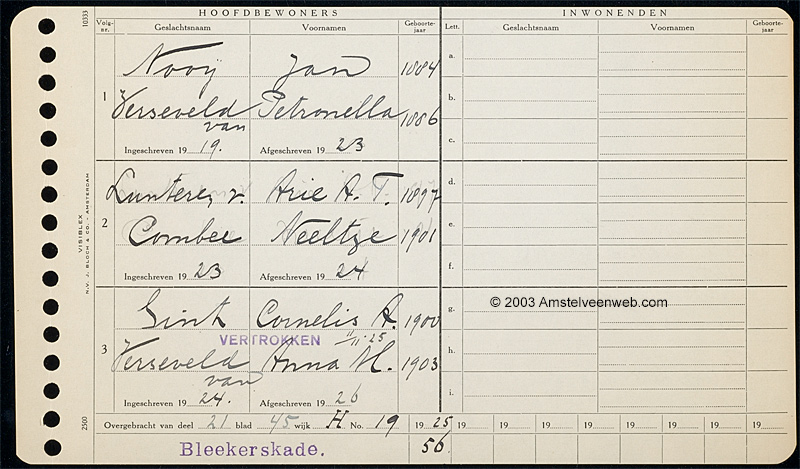 HOOFDBEWONERS
INWONENDEN
Volg-nr. Geslachtsnaam Voornamen Geboorte-jaar
Lett. Geslachtsnaam Voornamen Geboorte-jaar
10333
1
Nooij Jan 1884
Verseveld van Petronella 1886
Ingeschreven 19 19. Afgeschreven 19 23
2
Lunteren, v. Arie A. T. 1897
Combee Neeltje 1901
Ingeschreven 19 23 Afgeschreven 19 24
3
Gink Cornelis A. 1900
VERTROKKEN 11/11-25
Verseveld van Anna M. 1903
Ingeschreven 19 24. Afgeschreven 19 26
a.
b.
c.
d.
e.
f.
g.
h.
i.
© 2003 Amstelveenweb.com
VISIBLEX
N.V. J. BLOCH & CO. - AMSTERDAM
2500
Overgebracht van deel 21 blad 45 wijk H No. 19 19 25 19 19 19 19 19 19 19
Bleekerskade. 56